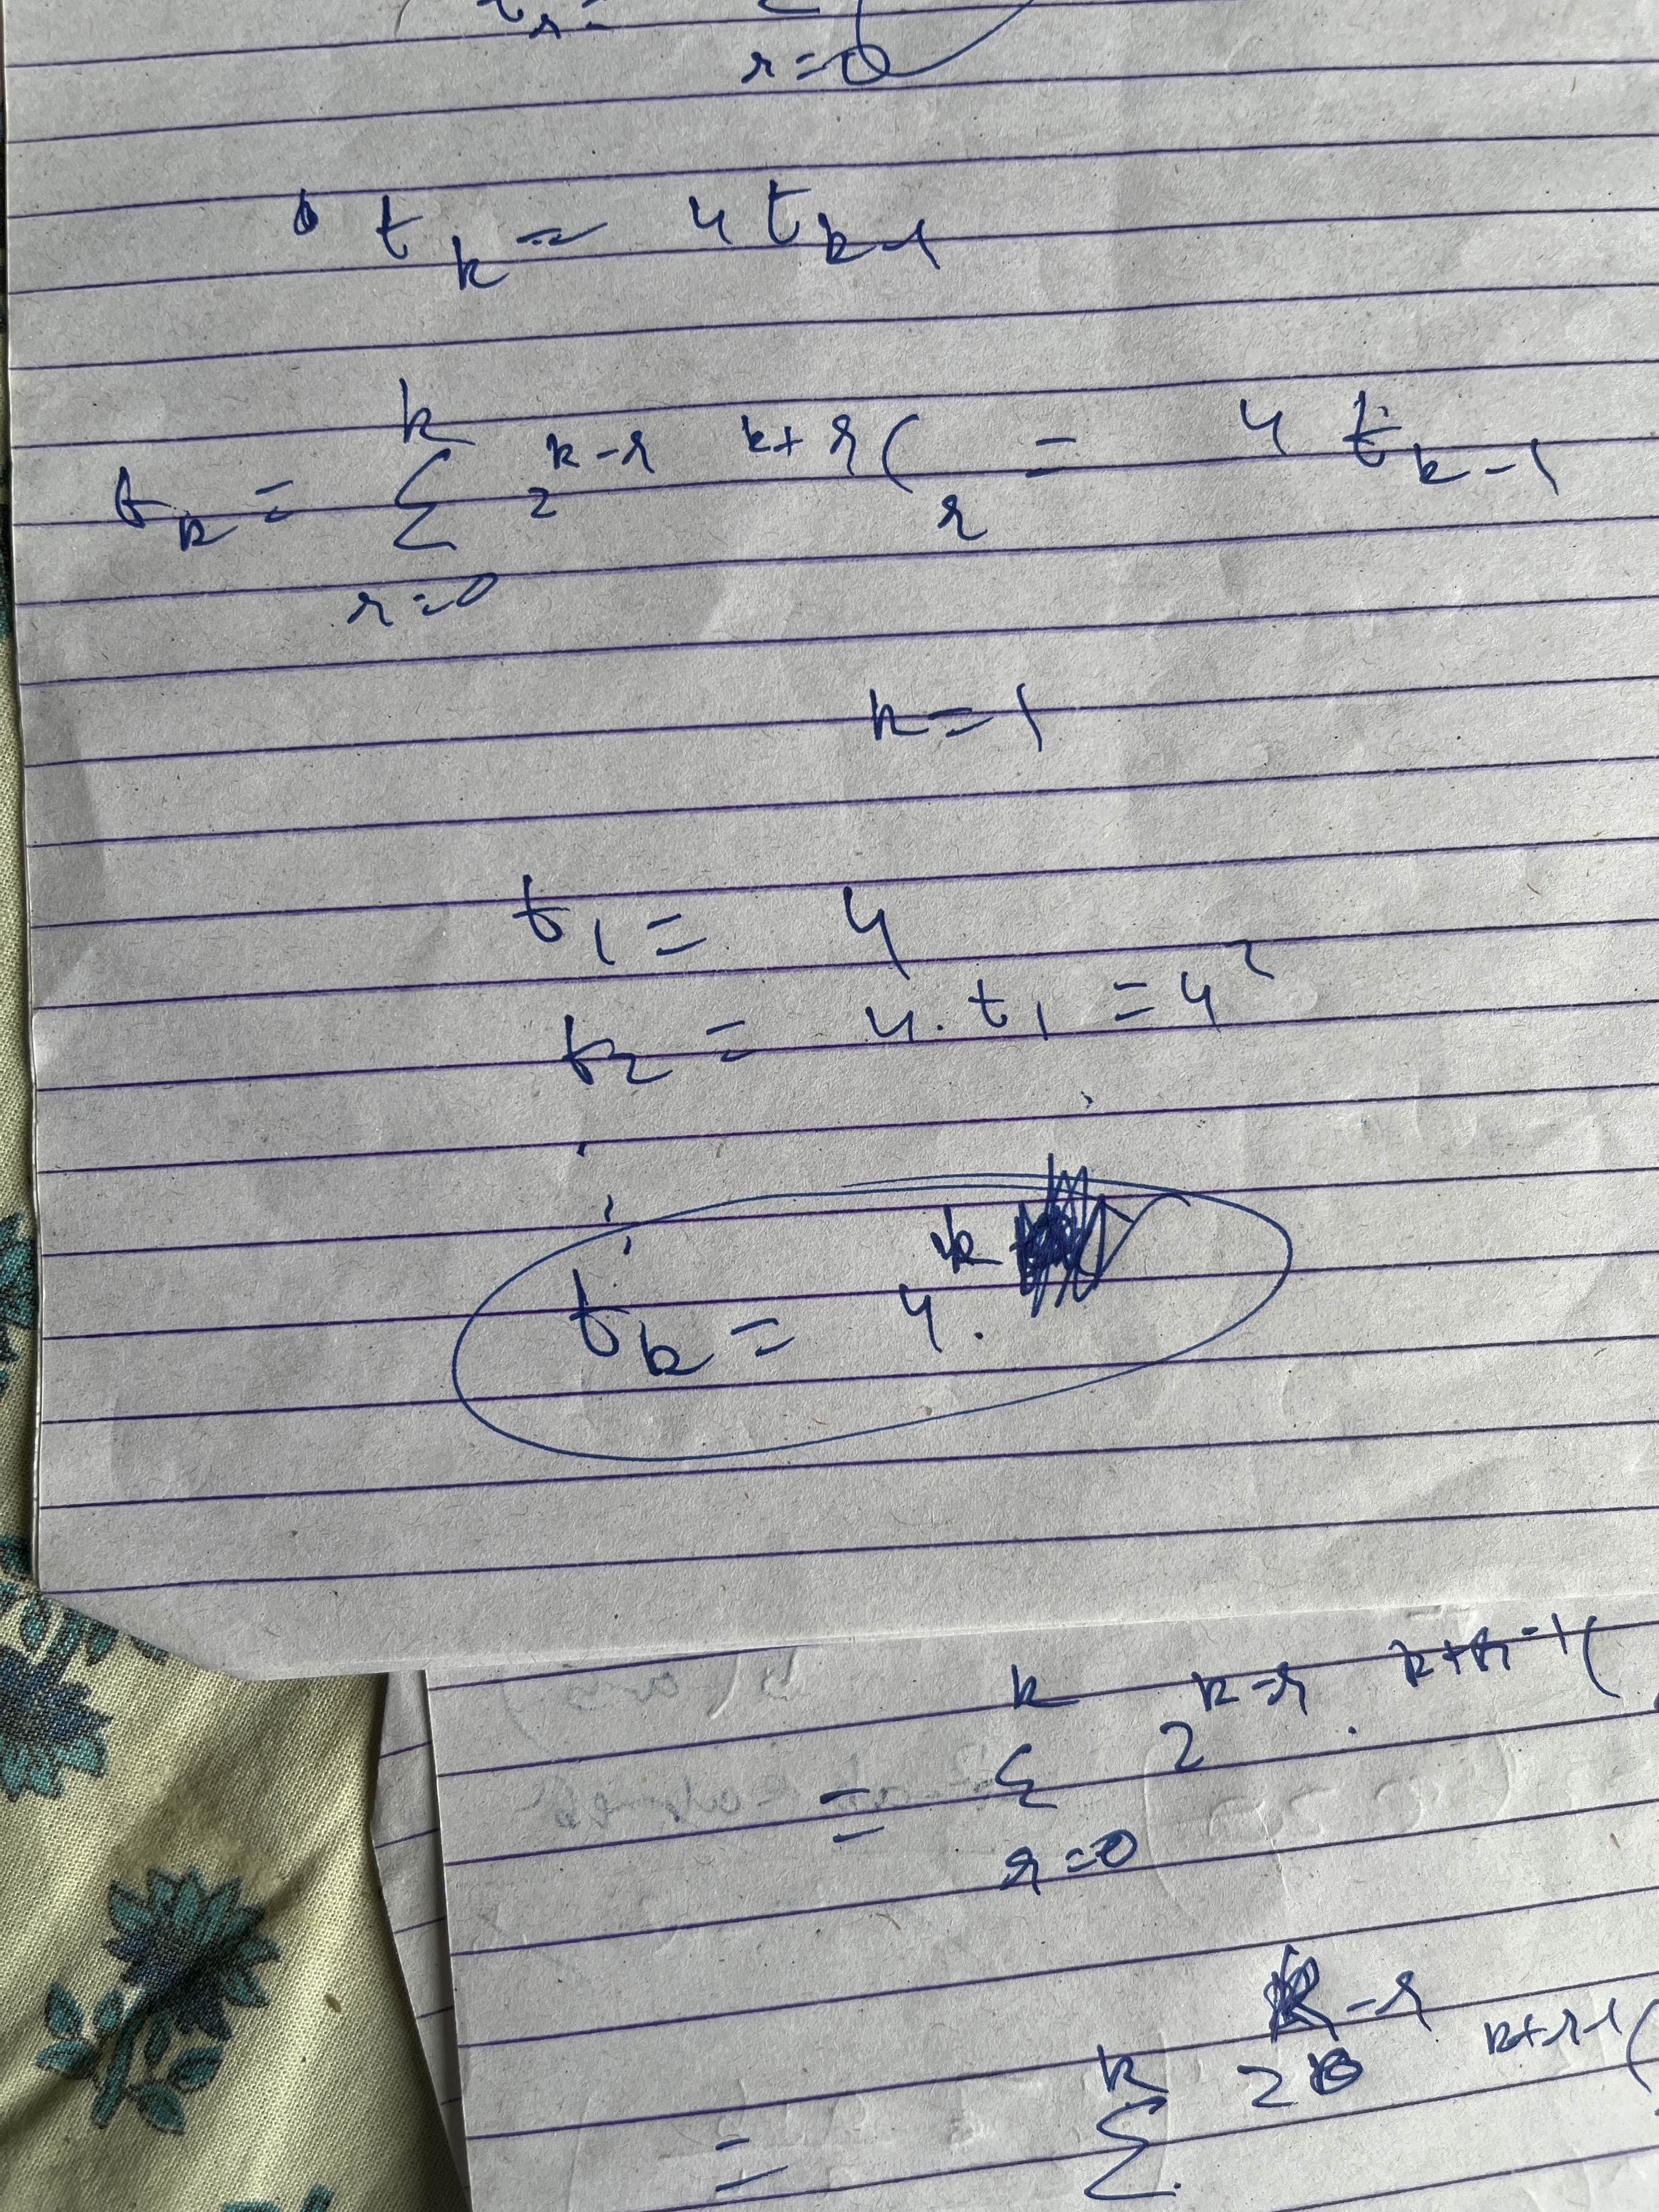 r=0
t_k = 4 t_{k-1}
t_k = \sum_{r=0}^{k} 2^{k-r} ^{k+r}C_r = 4 t_{k-1}
k=1
t_1 = 4
t_2 = 4. t_1 = 4^2
t_k = 4.^k
= \sum_{r=0}^{k} 2^{k-r} . ^{k+r-1}C
= \sum^{k} 2^{k-r} ^{k+r-1}C